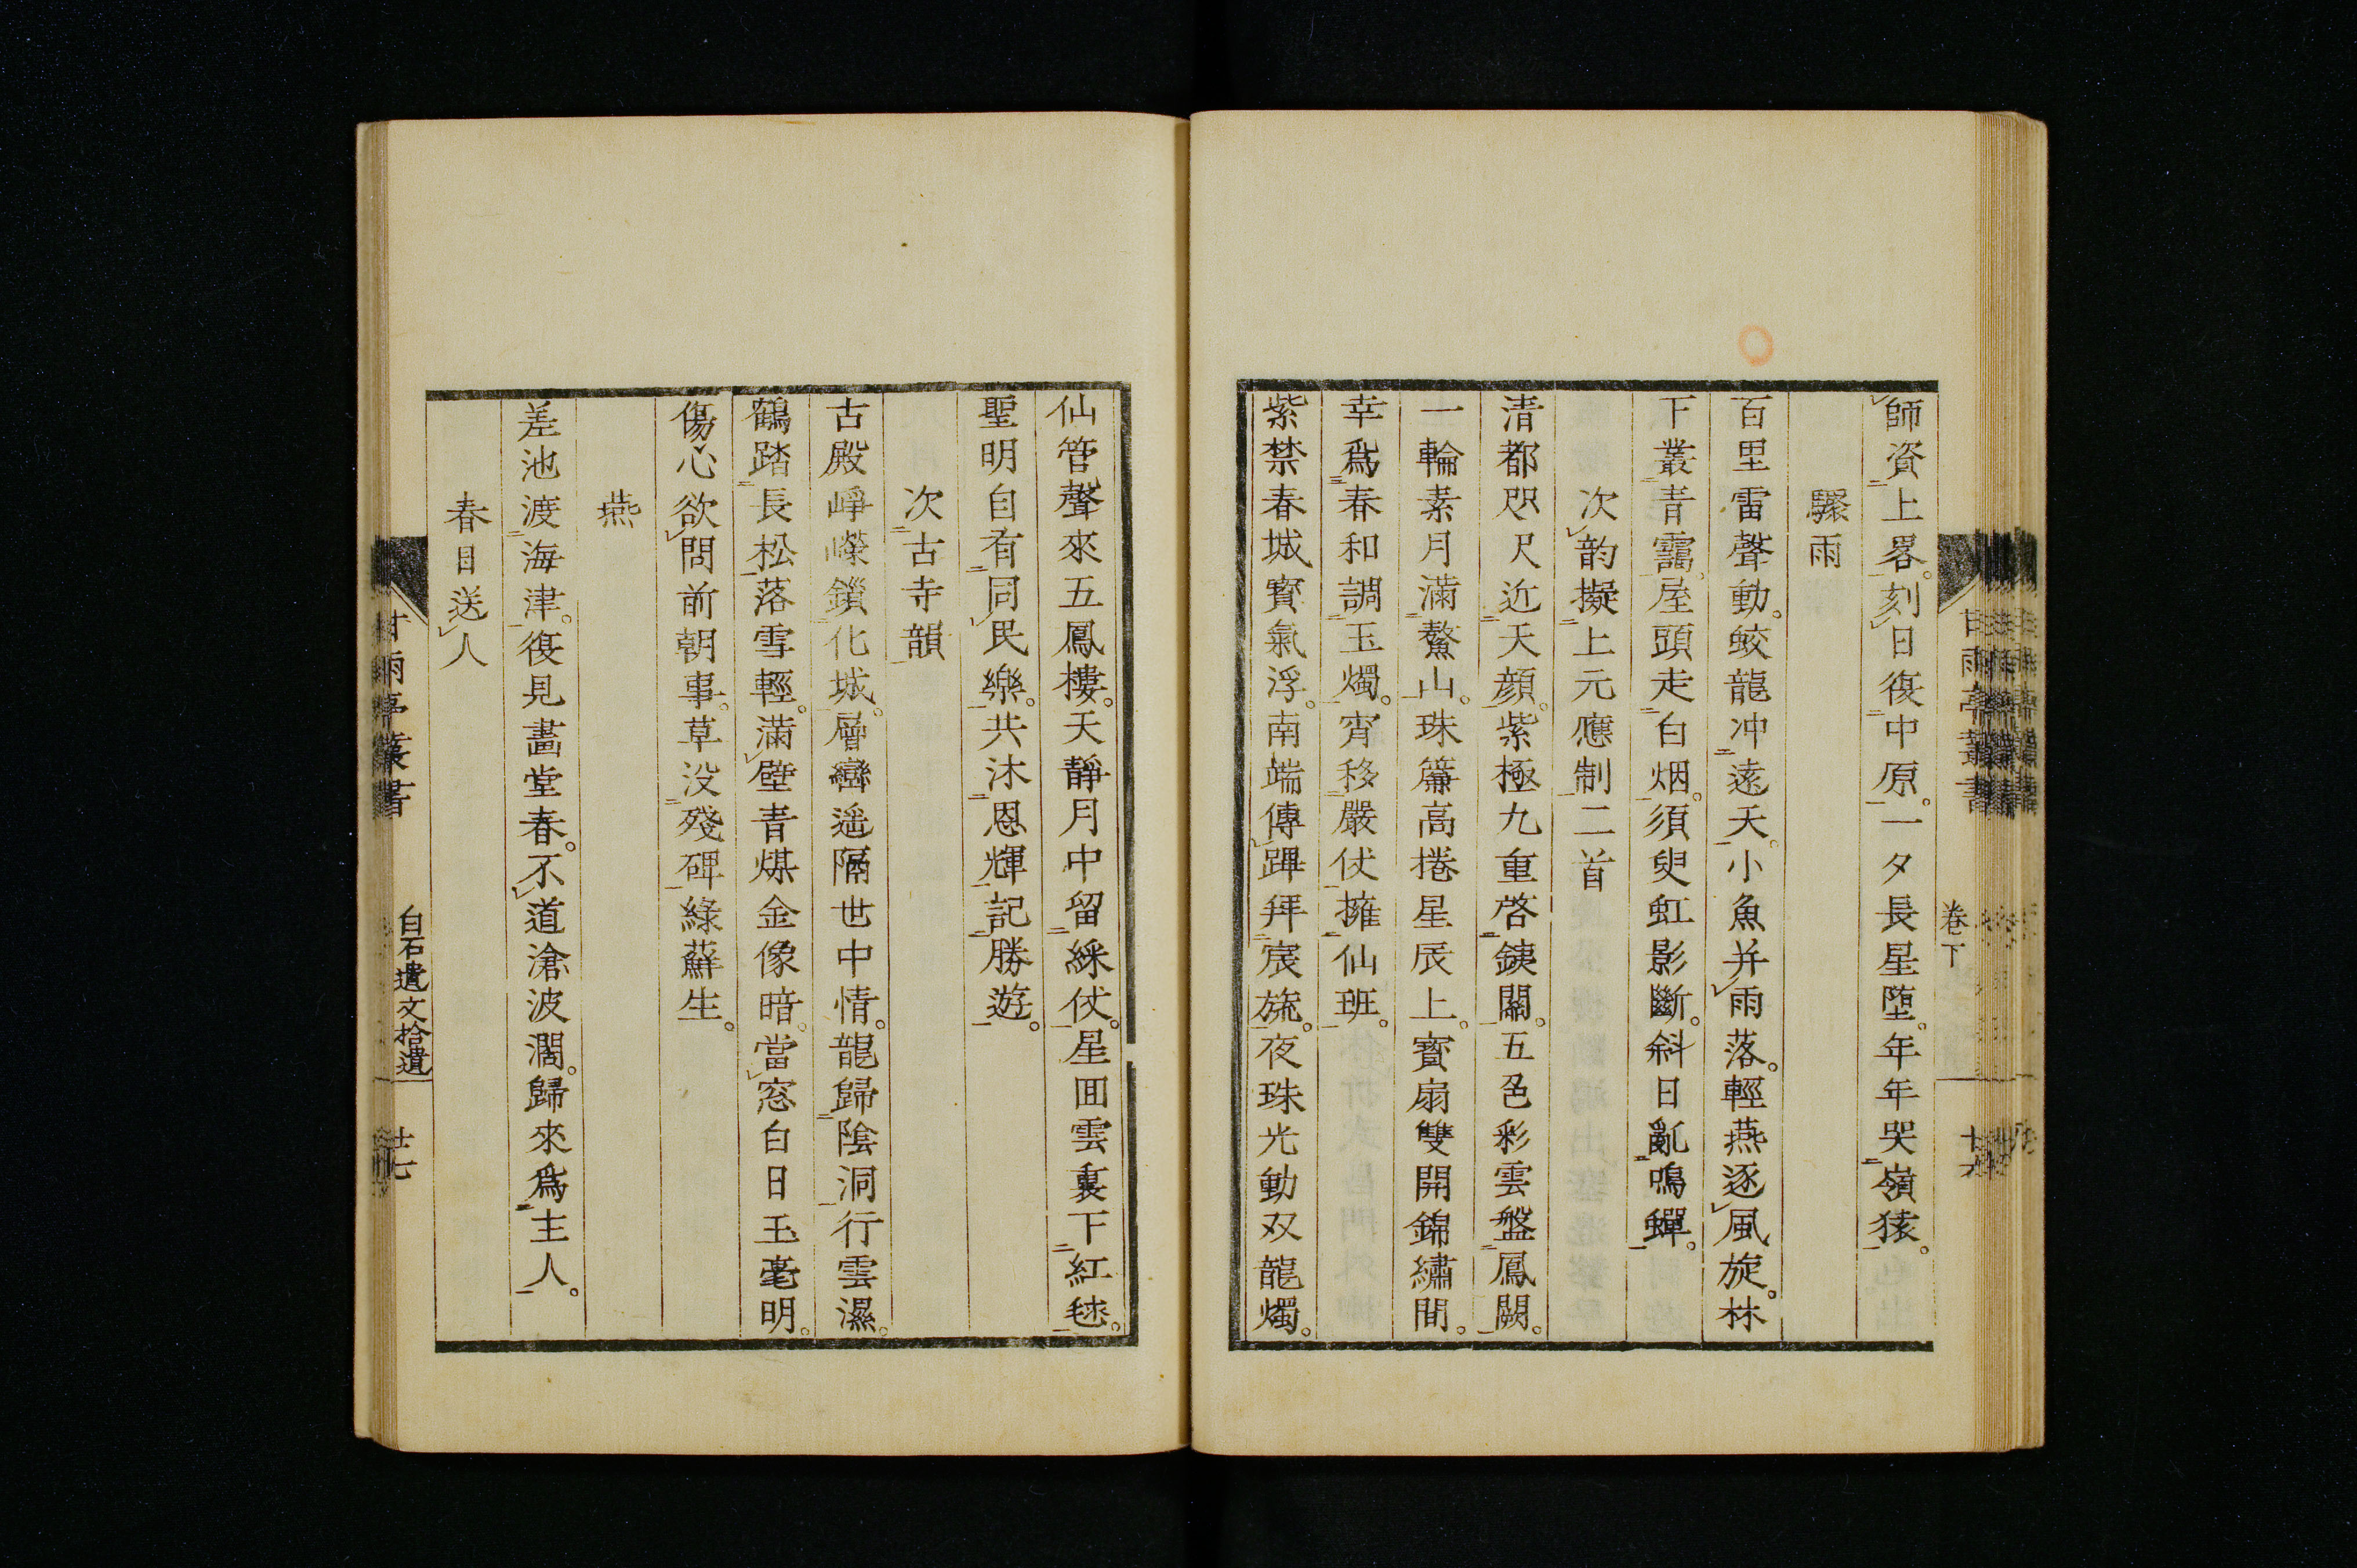 師資上畧。刻日復中原。一夕長星墮。年年哭嶺猿。
驟雨
百里雷聲動。蛟龍冲遠天。小魚并雨落。輕燕逐風旋。林
下叢青靄。屋頭走白烟。須臾虹影斷。斜日亂鳴蟬。
次韵擬上元應制二首
清都咫尺近天顔。紫極九重啓鐵關。五色彩雲盤鳳闕。
一輪素月滿鰲山。珠簾高捲星辰上。寳扇雙開錦繡間。
幸爲春和調玉燭。宵移嚴仗擁仙班。
紫禁春城寳氣浮。南端傳蹕拜宸旒。夜珠光動双龍燭。
甘雨亭叢書
卷下
仙管聲來五鳳樓。天靜月中留綵仗。星囬雲裏下紅毬。
聖明自有同民樂。共沐恩輝記勝遊。
次古寺韻
古殿崢嶸鎖化城。層巒遥隔世中情。龍歸陰洞行雲濕。
鶴踏長松落雪輕。滿壁青煤金像暗。當窓白日玉毫明。
傷心欲問前朝事。草没殘碑綠蘚生。
燕
差池渡海津。復見畵堂春。不道滄波濶。歸來爲主人。
春日送人
甘雨亭叢書
白石遺文拾遺